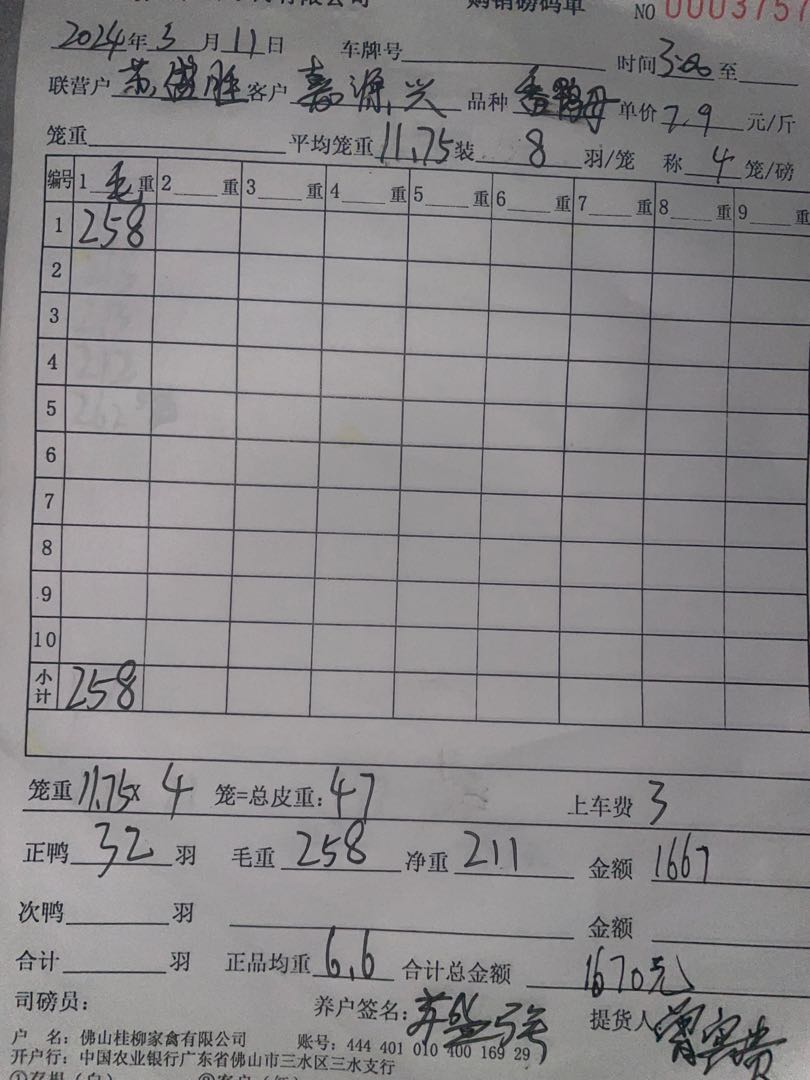 购销磅码单 NO 0003757
2024年3月11日 车牌号 时间3:00至
联营户 苏盛胜 客户 嘉源兴 品种 香鸭母 单价7.9元/斤
笼重 平均笼重11.75装 8 羽/笼 称 4 笼/磅
编号 1 毛 重 2 重 3 重 4 重 5 重 6 重 7 重 8 重 9 重
1 258
2
3
4
5
6
7
8
9
10
小计 258
笼重11.75x 4 笼=总皮重:47 上车费 3
正鸭 32 羽 毛重 258 净重 211 金额 1667
次鸭 羽 金额
合计 羽 正品均重 6.6 合计总金额 1670元
司磅员: 养户签名: 提货人
户 名:佛山桂柳家禽有限公司 账号:444 401 010 400 169 29
开户行:中国农业银行广东省佛山市三水区三水支行